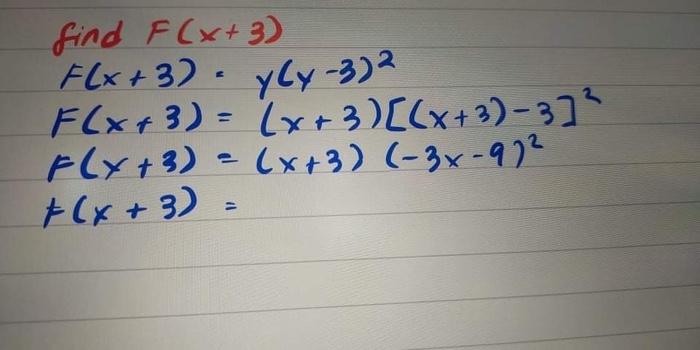 find F(x+3)
F(x+3) = y(y-3)²
F(x+3) = (x+3)[(x+3)-3]²
F(x+3) = (x+3) (-3x-9)²
F(x+3) =